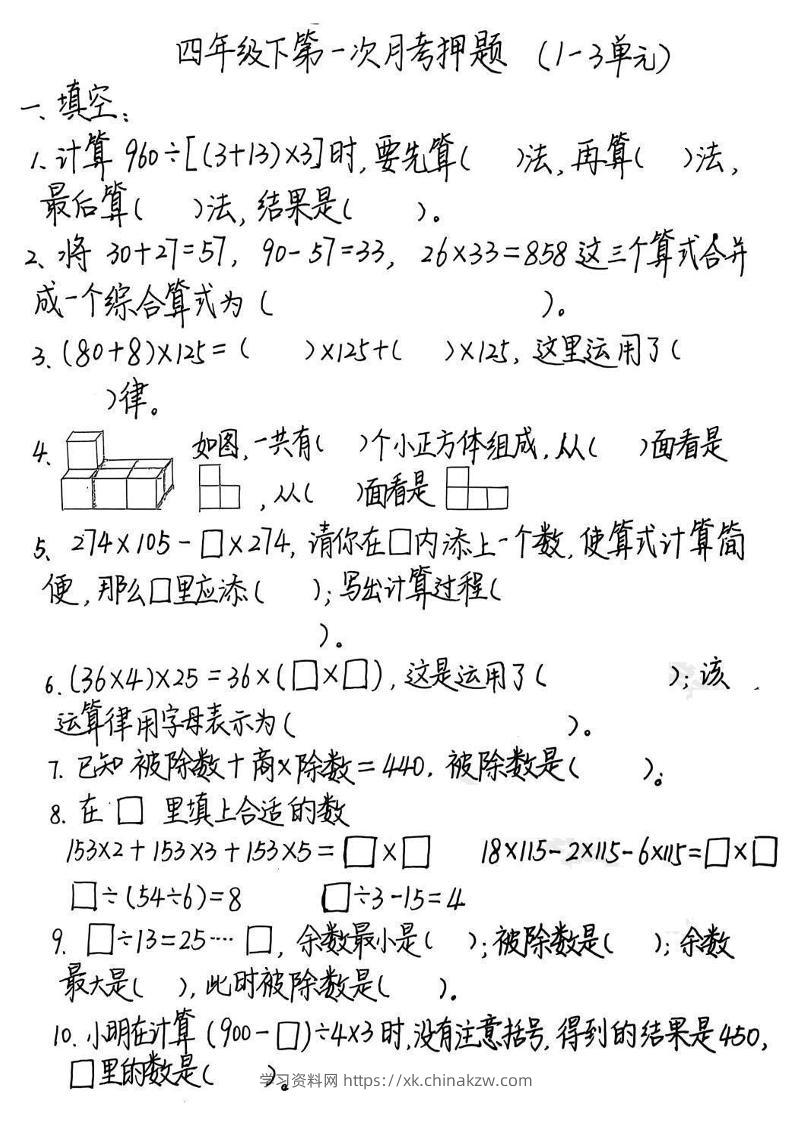 四年级下第一次月考押题 (1-3单元)
一、填空:
1、计算 960÷[(3+13)×3]时,要先算(  )法,再算(  )法,
最后算(  )法,结果是(  )。
2、将 30+27=57, 90-57=33, 26×33=858这三个算式合并
成一个综合算式为(  )。
3、(80+8)×125=(  )×125+(  )×125,这里运用了(
)律。
4、如图,一共有(  )个小正方体组成,从(  )面看是
,从(  )面看是
5、274×105-□×274,请你在□内添上一个数,使算式计算简
便,那么□里应添(  );写出计算过程(
)。
6.(36×4)×25=36×(□×□),这是运用了(  );该
运算律用字母表示为(  )。
7.已知被除数+商×除数=440,被除数是(  )。
8.在□里填上合适的数
153×2+153×3+153×5=□×□ 18×115-2×115-6×115=□×□
□÷(54÷6)=8 □÷3-15=4
9.□÷13=25····□,余数最小是(  );被除数是(  );余数
最大是(  ),此时被除数是(  )。
10.小明在计算(900-□)÷4×3时,没有注意括号,得到的结果是450,
□里的数是(  )。
学习资料网 https://xk.chinakzw.com